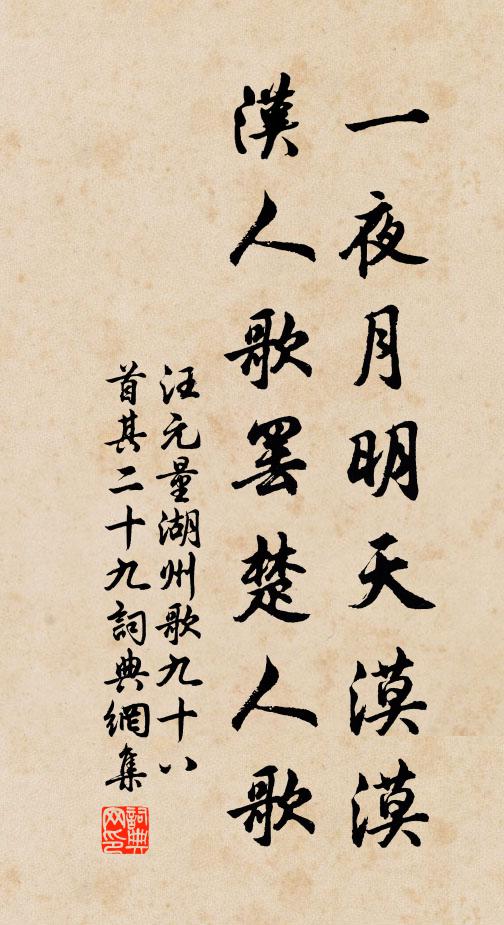 一夜月明天漠漠
漢人歌罷楚人歌
汪元量湖州歌九十八
首其二十九詞典網集
詞典网印